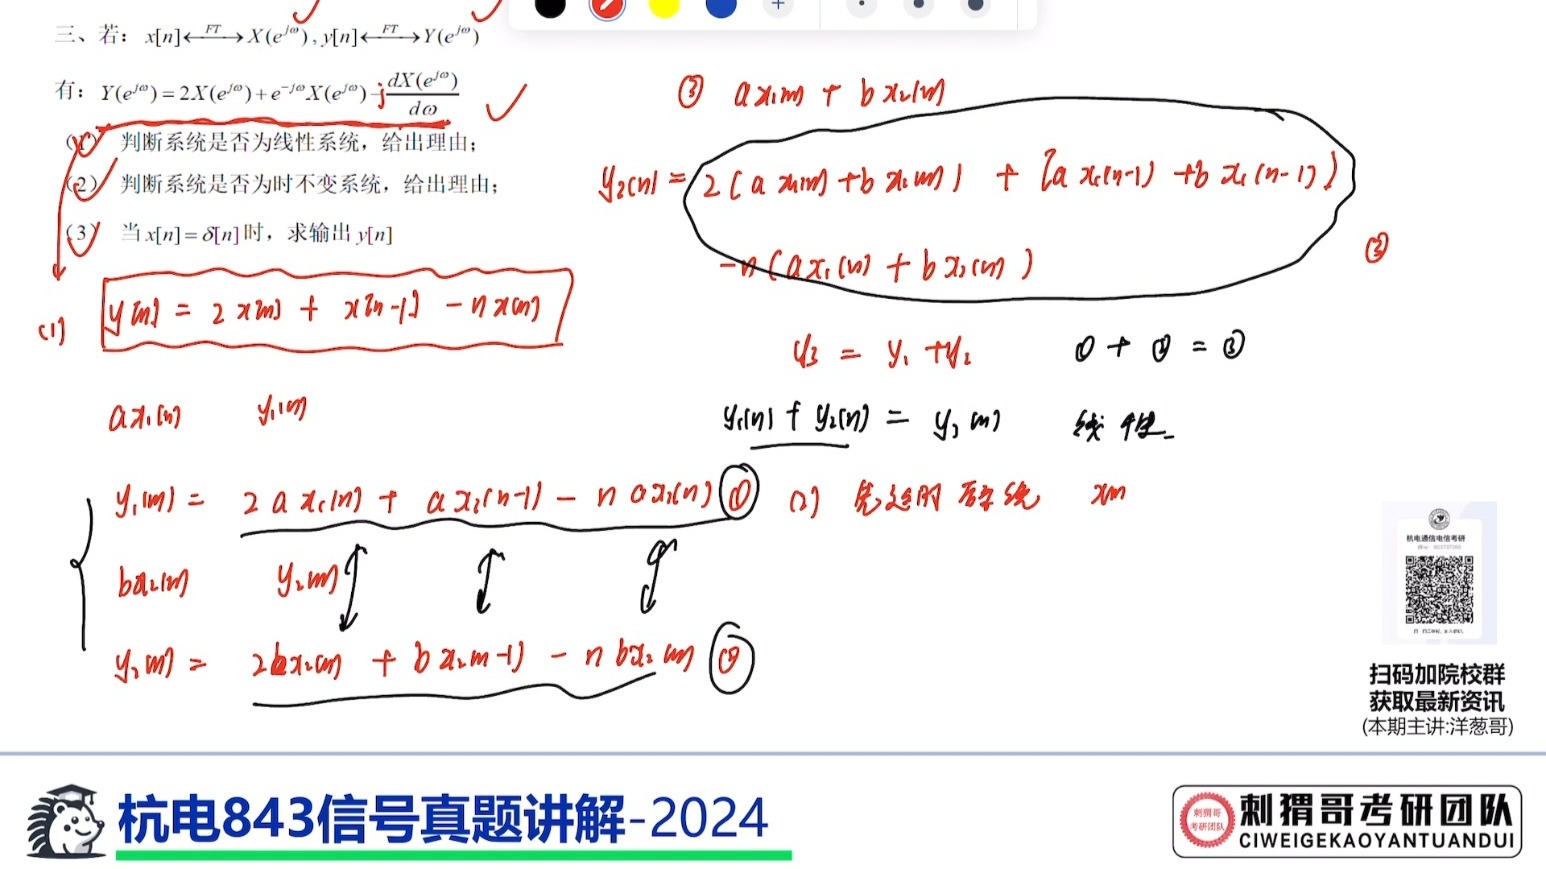 三、若：x[n]←FT→X(e^{jω}), y[n]←FT→Y(e^{jω})
有：Y(e^{jω})=2X(e^{jω})+e^{-jω}X(e^{jω})-j dX(e^{jω})/dω
(1) 判断系统是否为线性系统，给出理由；
(2) 判断系统是否为时不变系统，给出理由；
(3) 当x[n]=δ[n]时，求输出y[n]
(1) y[n] = 2x[n] + x[n-1] - nx(n)
ax₁(n) y₁(n)
y₁(n) = 2ax₁(n) + ax₁(n-1) - nax₁(n) ①
bx₂(n) y₂(n)
y₂(n) = 2bx₂(n) + bx₂(n-1) - nbx₂(n) ②
③ ax₁(n) + bx₂(n)
= 2[ax₁(n)+bx₂(n)] + [ax₁(n-1)+bx₂(n-1)]
-n(ax₁(n) + bx₂(n)) ③
y₃ = y₁+y₂ ①+②=③
y₁(n)+y₂(n) = y₃(n) 线性
(2) 先延时 x(n)
杭电通信电信考研
扫码加院校群
获取最新资讯
(本期主讲:洋葱哥)
杭电843信号真题讲解-2024
刺猬哥
考研团队
刺猬哥考研团队
CIWEIGEKAOYANTUANDUI